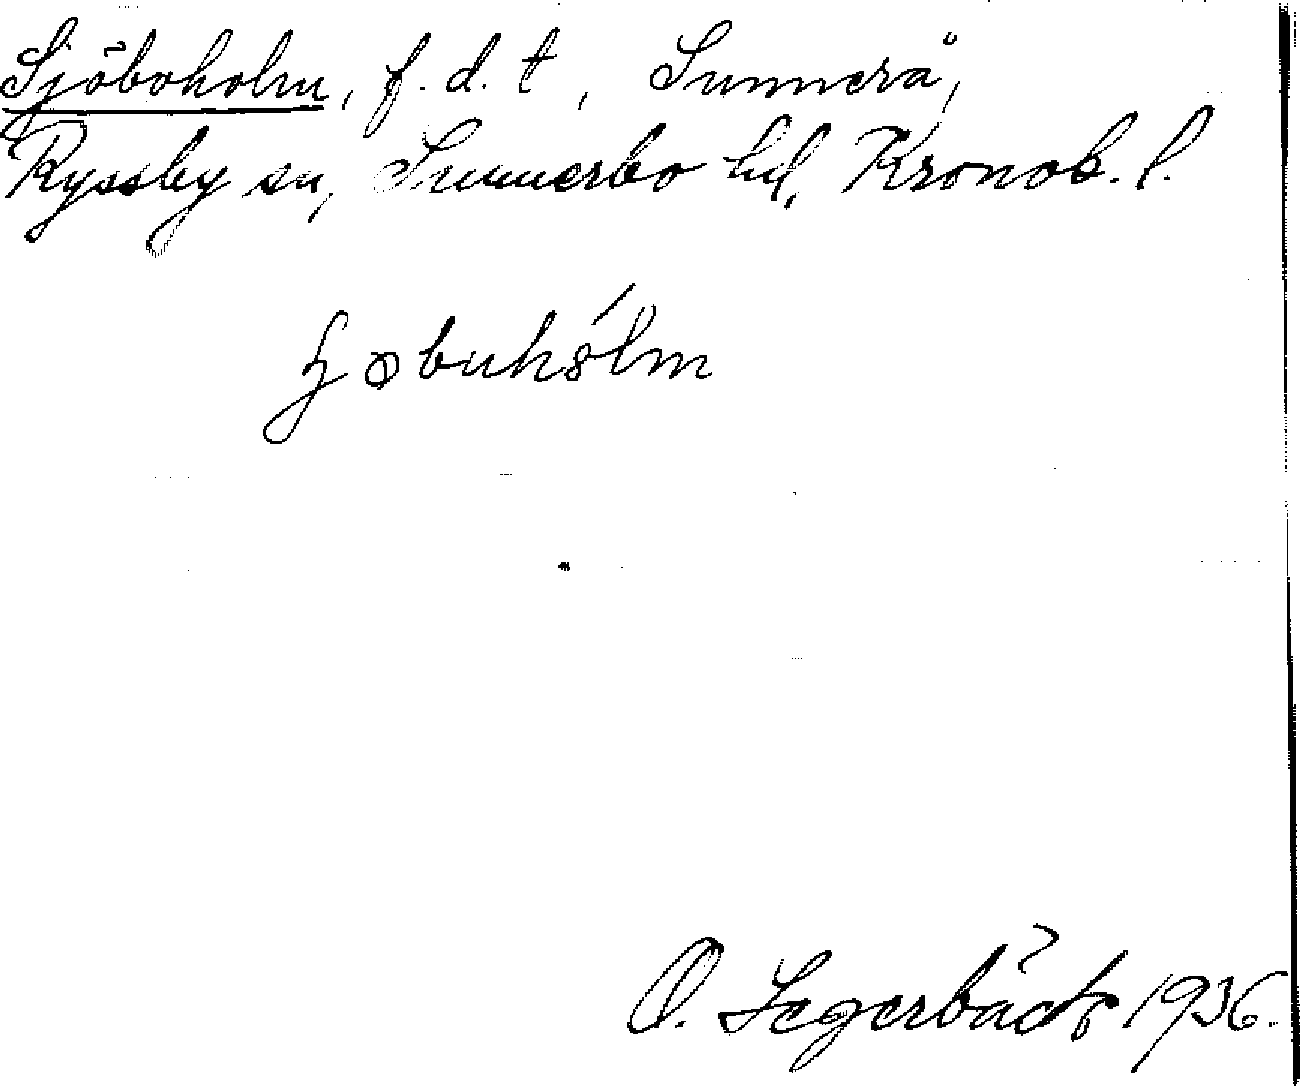 Sjöboholm, f.d. t, Sunnerå,
Ryssby sn, Sunnerbo hd, Kronob. l.
ɧøbuhólm
O. Segerbäck 1936.